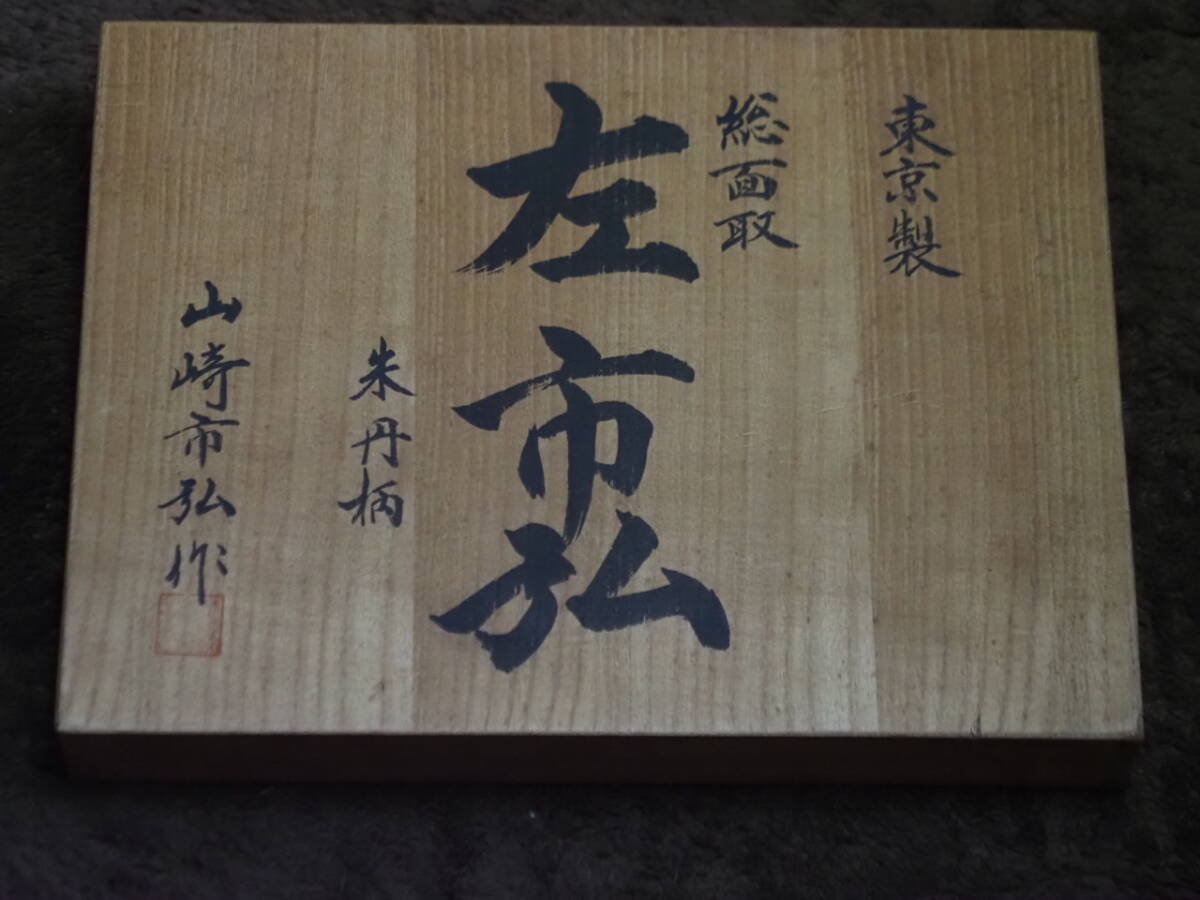 東京製
総面取
左市弘
朱丹柄
山崎市弘作